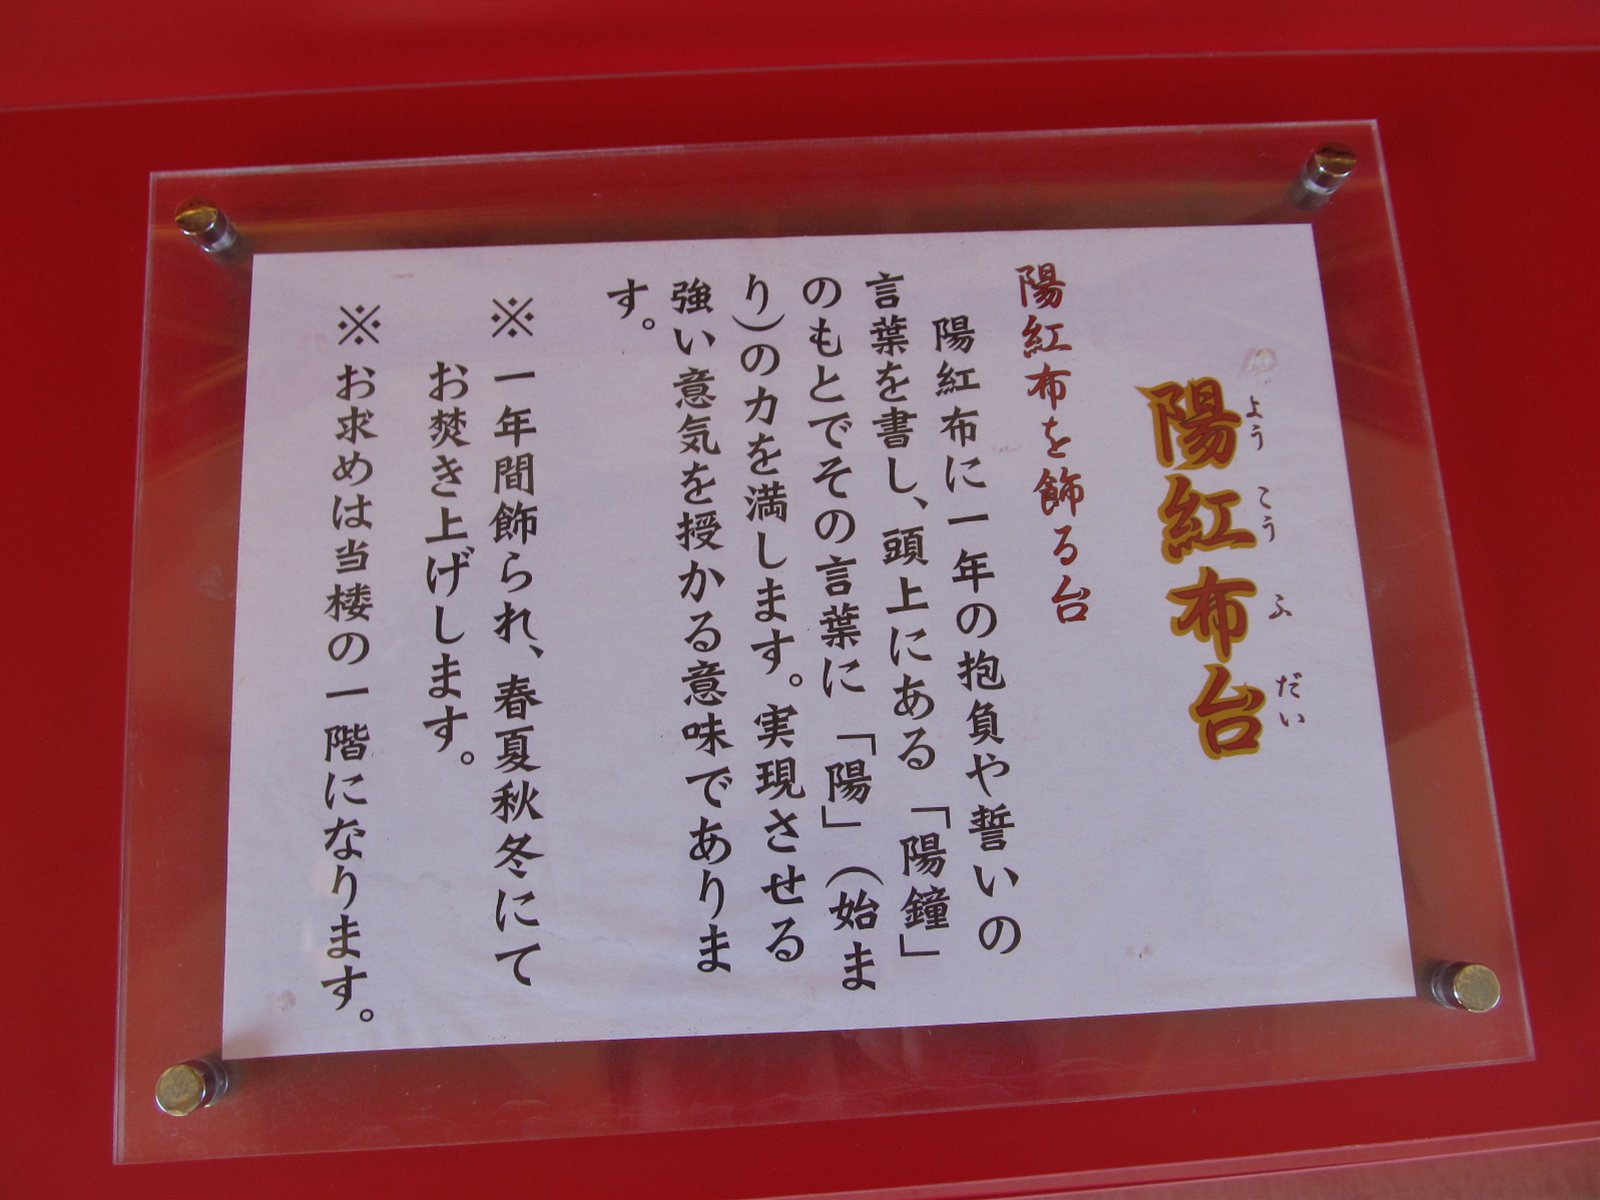 陽紅布台
よう こう ふ だい
陽紅布を飾る台
陽紅布に一年の抱負や誓いの
言葉を書し、頭上にある「陽鐘」
のもとでその言葉に「陽」(始ま
り)の力を満します。実現させる
強い意気を授かる意味でありま
す。
※一年間飾られ、春夏秋冬にて
お焚き上げします。
※お求めは当楼の一階になります。